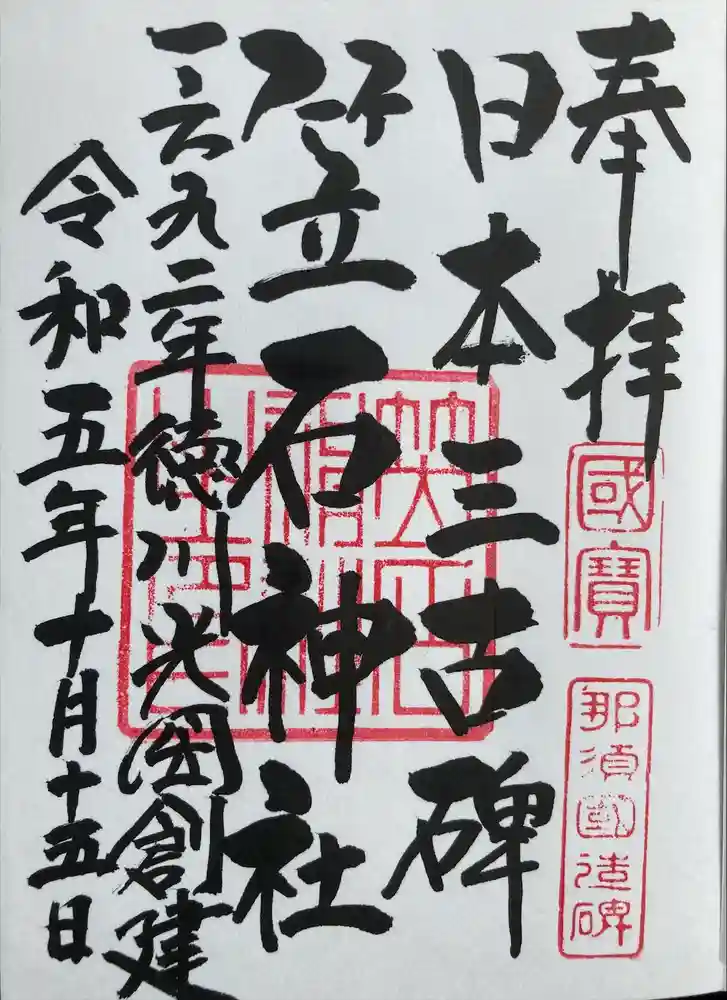 奉拝
國寶
那須國造碑
日本三古碑
笠石神社
一六九二年徳川光圀創建
令和五年十月十五日